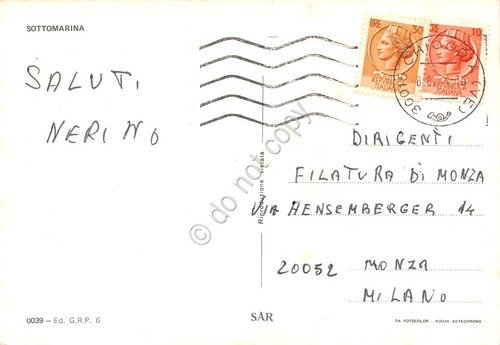 SOTTOMARINA
SALUTI
NERINO
30
10
30015 CHIOGGIA (VE)
do not copy
Riproduzione vietata
DIRIGENTI
FILATURA DI MONZA
VIA HENSEMBERGER 14
20052 MONZA
MILANO
0039 – Ed. G.R.P. 6
SAR
DA FOTOCOLOR - KODAK EKTACHROME